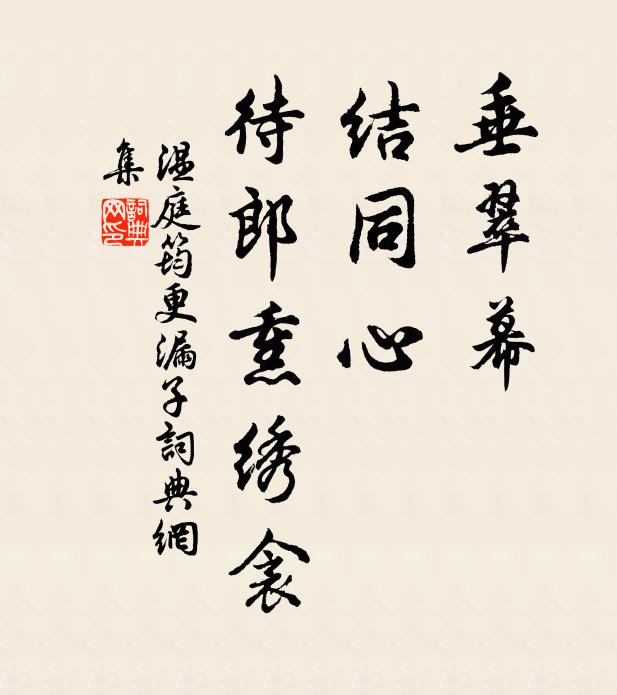 垂翠幕
结同心
待郎熏绣衾
温庭筠更漏子詞典網
集
詞典網印